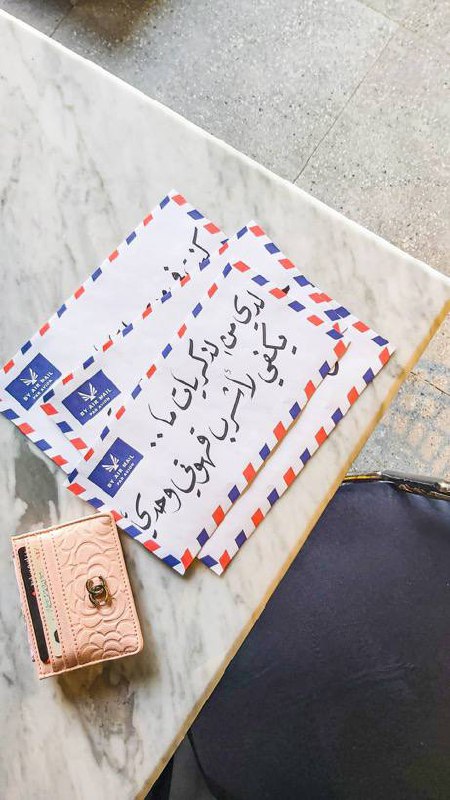 لدي من الذكريات ما..
يكفي لأشرب قهوتي وحدي
BY AIR MAIL
PAR AVION
BY AIR MAIL
PAR AVION
BY AIR MAIL
PAR AVION